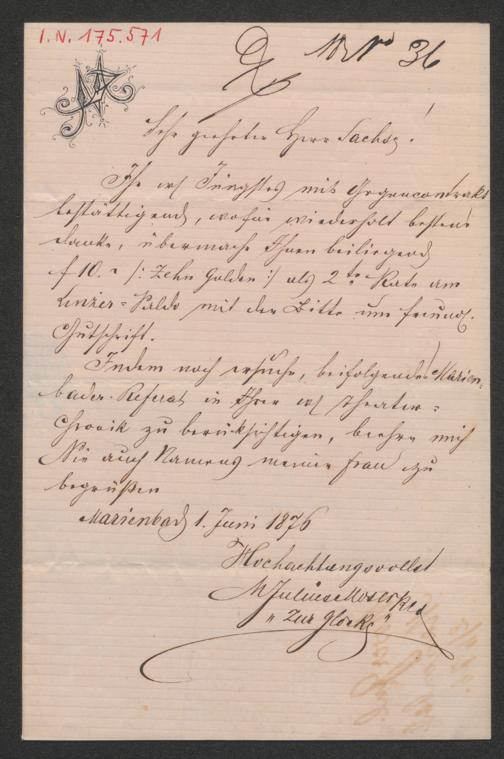 I.N. 175.571
36
Sehr geehrter Herr Sachse!
Ihr w/ Jüngstes mit Gegencontrakt
bestättigend, wofür wiederholt bestens
danke, übermache Ihnen beiliegend
f 10.- /: Zehn Gulden :/ als 2te Rate am
Linzer-Saldo mit der Bitte um freundl.
Gutschrift.
Indem noch ersuche, beifolgendes Marien-
bader-Referat in Ihrer w/ Theater-
Chronik zu berücksichtigen, beehre mich
Sie auch Namens meiner Frau zu
begrüßen
Marienbad 1. Juni 1876
Hochachtungsvollst
"Zur Glocke"